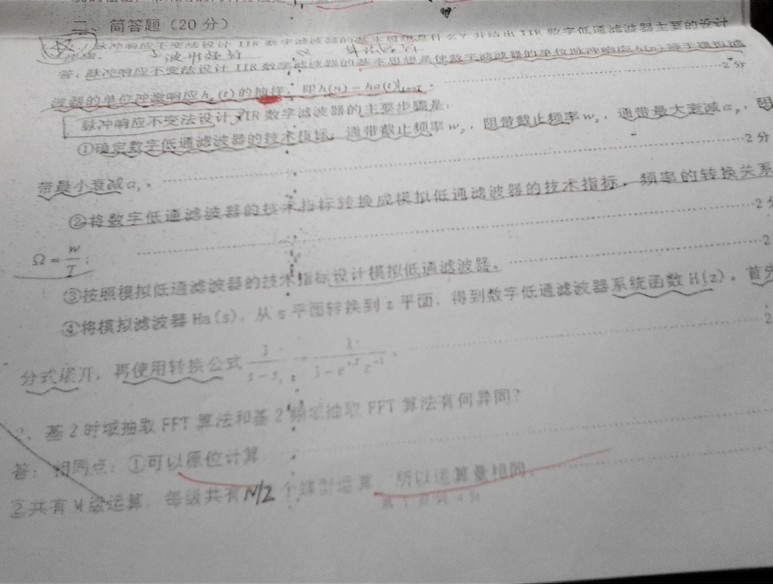 二 简答题（20分）
脉冲响应不变法设计 IIR 数字滤波器的基本思想是什么？并给出 IIR 数字低通滤波器主要的设计
答：脉冲响应不变法设计 IIR 数字滤波器的基本思想是使数字滤波器的单位脉冲响应h(n)等于模拟滤
波器的单位冲激响应hₐ(t)的抽样，即h(n)=ha(t)|
2分
脉冲响应不变法设计 IIR 数字滤波器的主要步骤是：
①确定数字低通滤波器的技术指标。通带截止频率 w，阻带截止频率 wₛ，通带最大衰减αₚ，阻
2分
带最小衰减αₛ。
②将数字低通滤波器的技术指标转换成模拟低通滤波器的技术指标，频率的转换关系
2分
Ω=w/T；
③按照模拟低通滤波器的技术指标设计模拟低通滤波器。
2
④将模拟滤波器Ha(s)，从 s 平面转换到 z 平面，得到数字低通滤波器系统函数H(z)。首先
分式展开，再使用转换公式
2
基2时域抽取 FFT 算法和基2频域抽取 FFT 算法有何异同？
答：相同点：①可以原位计算
②共有 M 级运算，每级共有N/2个蝶型运算，所以运算量相同。